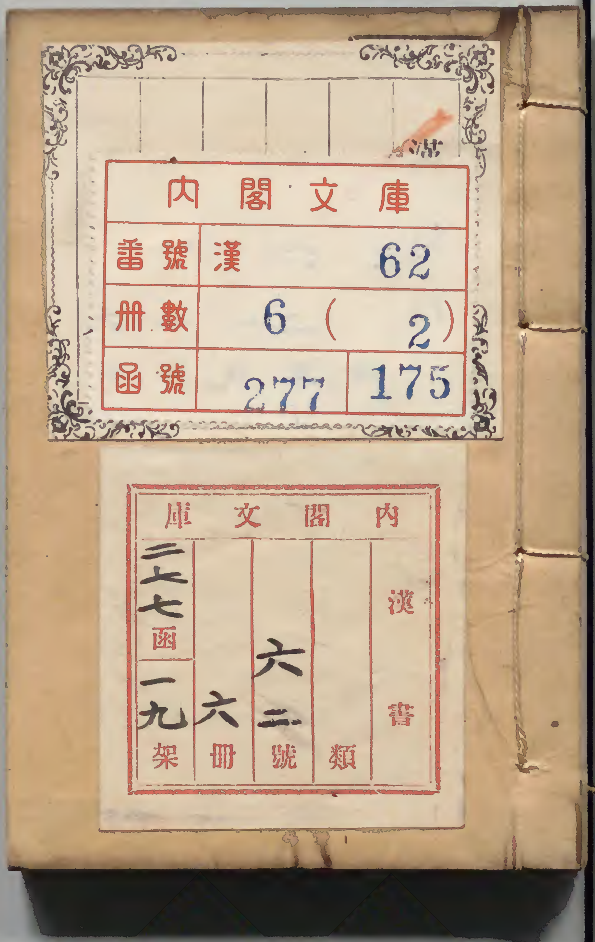 内閣文庫
番號 漢 62
册數 6 ( 2 )
函號 277 175
内閣文庫
漢書
類
六二號
六冊
二七七函
一九架